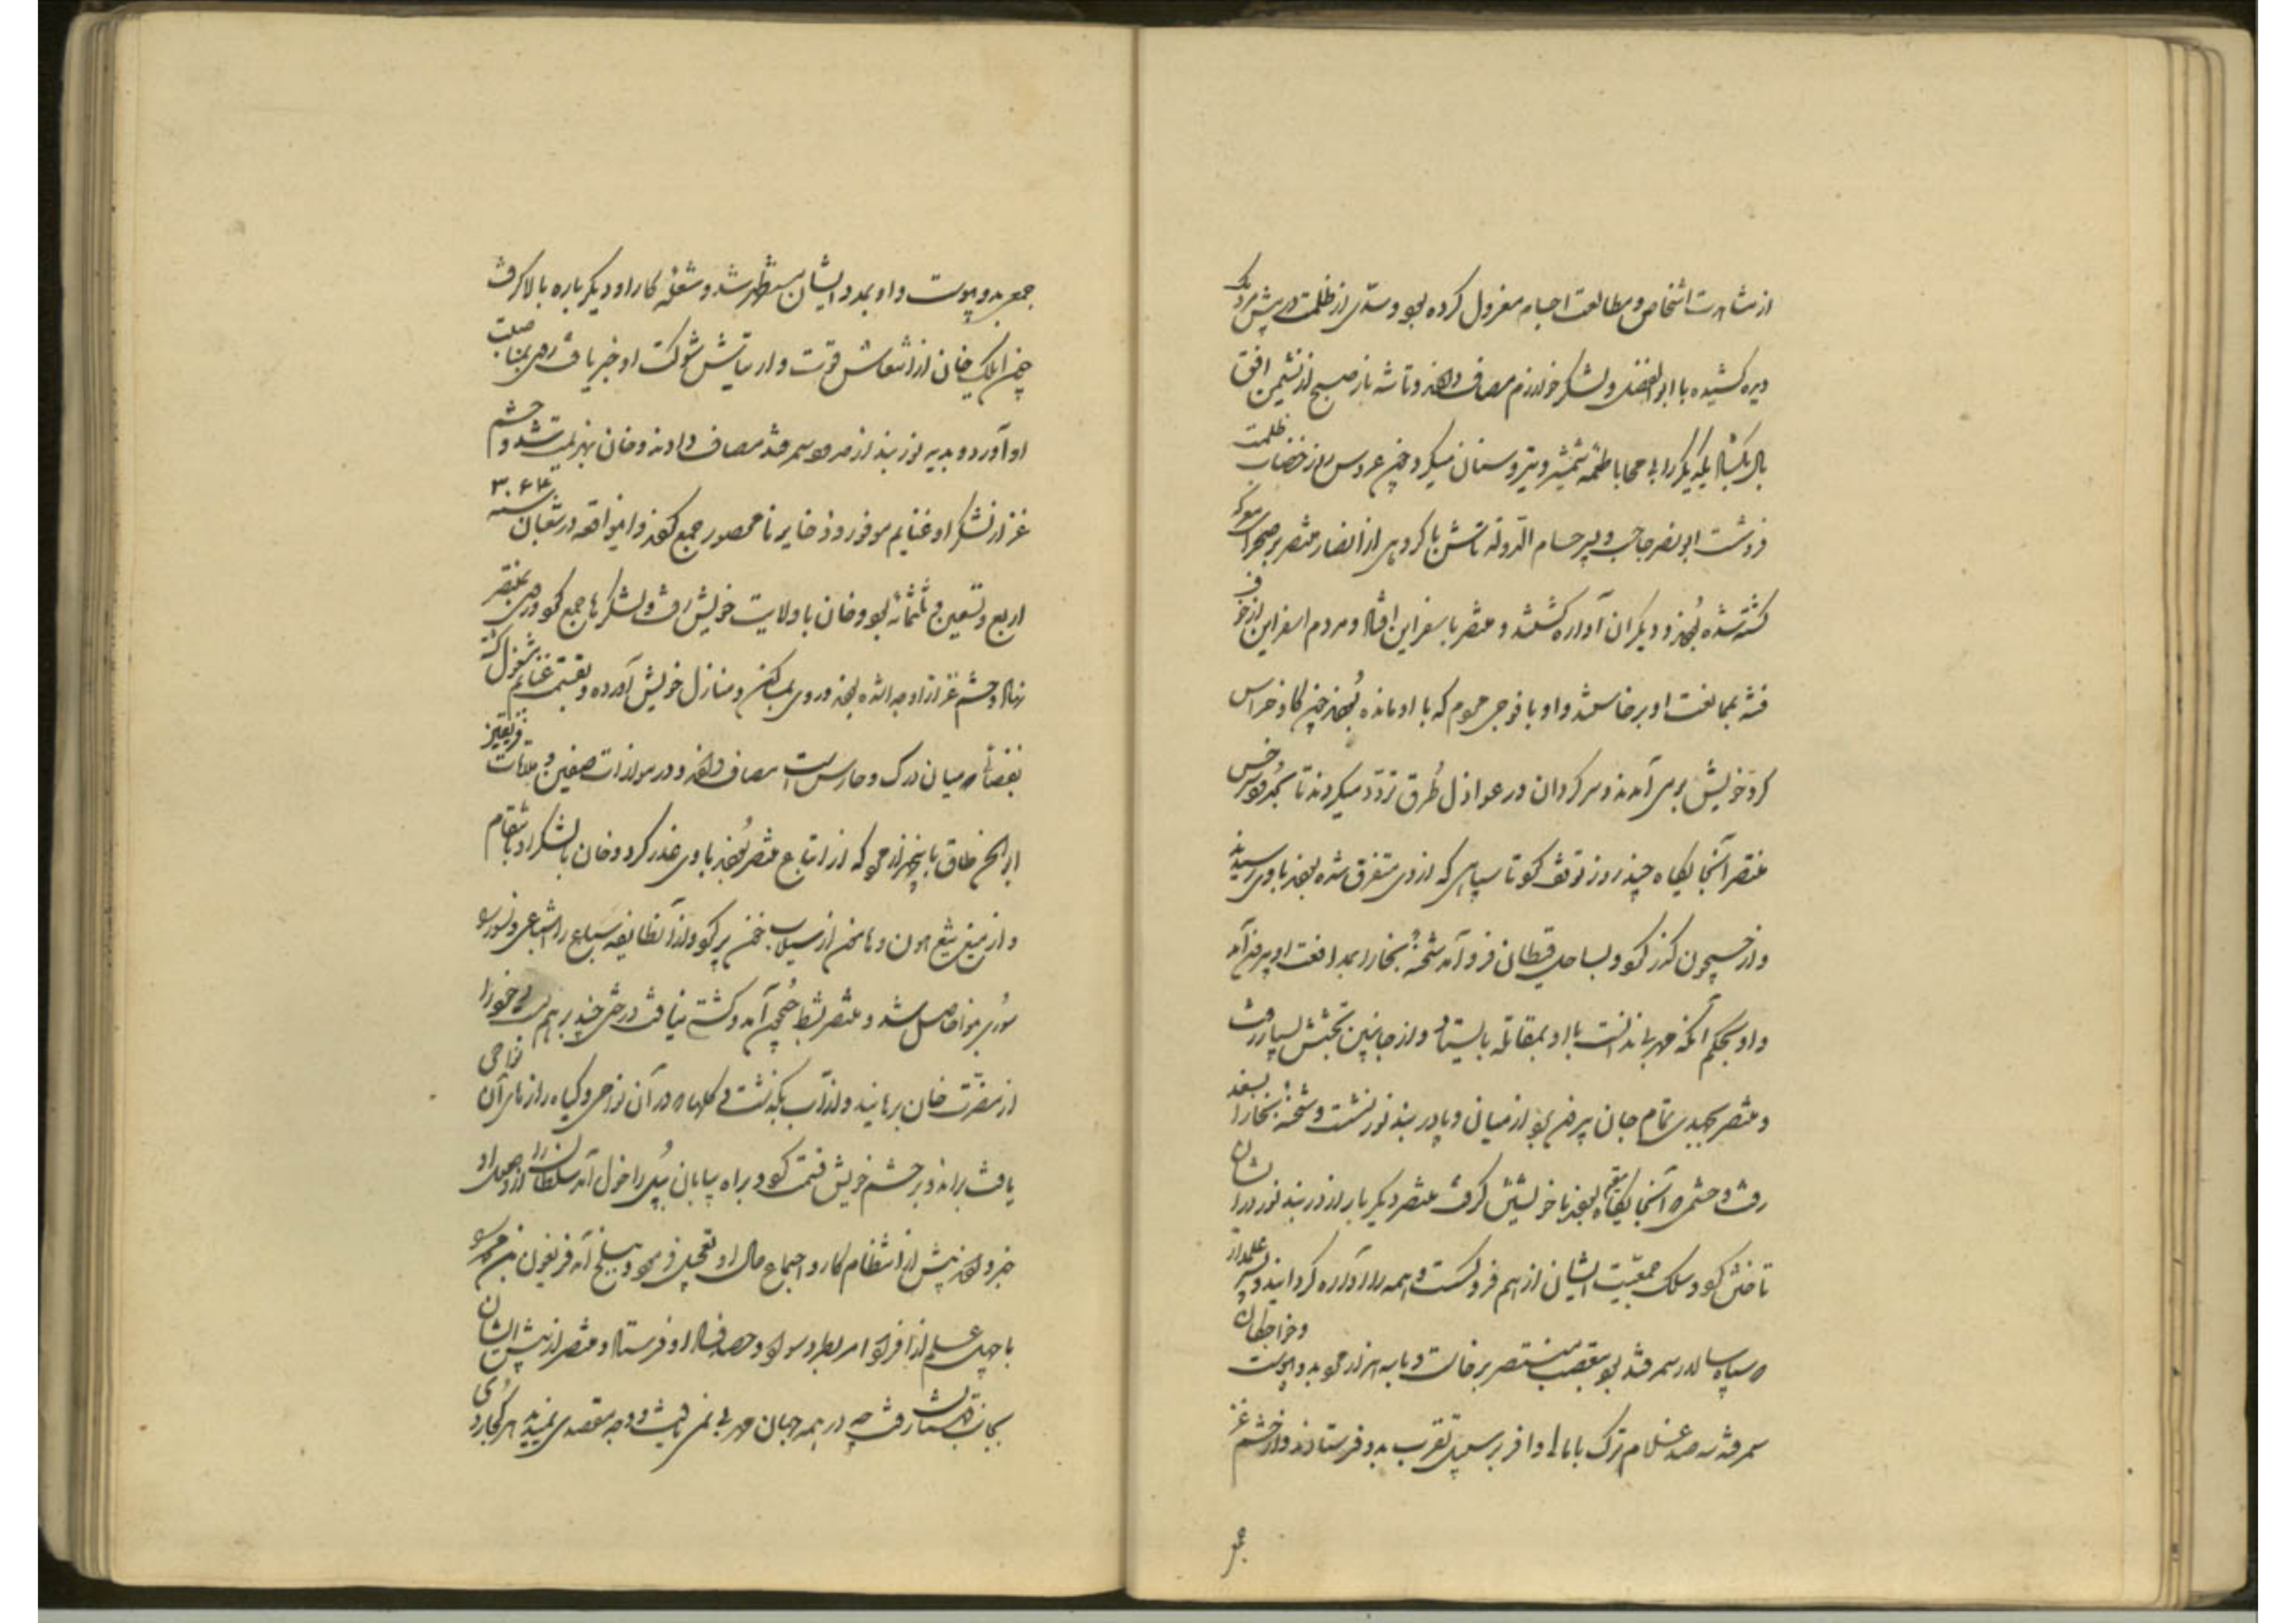 از مشاهدت اشخاص و مطالعت اجسام معزول کرده بود و سدّی از ظلمت در پیش مردمک
دیده کشیده با ابوالفضل و لشکر خوارزم مصاف دادند و تا شه باز صبح از نشیمن افق
بال بگشاد یکدیگر را بی محابا طعمه شمشیر و تیر و سنان میکرد چون عروس روز از خضاب ظلمت
ابو نصر حاجب و پسر حسام الدوله تاش با گروهی از انصار منتصر بر صحرا معرکه
کشته شده بودند و دیگران آواره گشتند و منتصر باسفراین افتاد و مردم اسفراین از خوف
فتنه بممانعت او برخاستند و او با فوجی حموم که با او مانده بودند چون گاو خراس
گرد خویش برمی آمدند و سرگردان در عوازل طرق تردد میکردند تا بحدود سرخس
منتصر آنجایگاه چند روز توقف کرد تا سپاهی که از وی متفرق شده بودند باوی رسیدند
و از جیحون گذر کرد و بساحل قطان فرو آمد شحنه بخارا بمدافعت او بیرون آمد
و او بحکم آنکه مهرب ندانست با او بمقاتله بایستاد و از جانبین کشش بسیار رفت
و منتصر بجدی تمام جان بیرون برد از میان و بدربند نور نشست و شحنه بخارا بسغد
رفت و حشمی که آنجایگاه مقیم بودند با خویشتن گرفت منتصر دیگر بار از دربند نور در ایشان
تاختن کرد و سلک جمعیت ایشان از هم فرو گسست و همه را آواره گردانید و پسر علمدار
که سپاه سالار سمرقند بود بتعصب منتصر برخاست و با سه هزار مرد بدو پیوست و خواجگان
سمرقند سه صد غلام ترک با مالی وافر بر سبیل تقرب بدو فرستادند و از حشم غز
جمعی بدو پیوست و او بمدد ایشان مستظهر شد و شعله کار او دیگر باره بالا گرفت
چون ایلک خان از انتعاش قوت و ارتیاش شوکت او خبر یافت روی بمناصبت
او آورد و بدیه نوربند از در سمرقند مصاف دادند و خان بهزیمت شد و حشم
غز از لشکر او غنایم موفور و ذخایر نا محصور جمع کردند و این واقعه در شعبان سنه ۳۹۴
اربع و تسعین و ثلثمائه بود و خان با ولایت خویش رفت و لشکرها جمع کرد و روی بمنتصر
نهاد و حشم غز از او جدا شده بودند و روی بمساکن و منازل خویش آورده و بقسمت غنایم مشغول گشته
بفضائی که میان دزک و حارس است مصاف دادند و در موازات صفین و ملاقات فریقین
ابوالحسن طاق با پنجهزار مرد که از اتباع منتصر بودند باوی غدر کرد و خان با لشکر او بانتقام
و از تیغ هامون و هامون از سیلاب خون پر کرد و از آن طایفه سباع را اشباعی و نسور را
سوری مهنّا حاصل شد و منتصر بشط جیحون آمد و کشتی نیافت درختی چند بر هم بست و خود را
از مضرت خان برهانید و از آب بگذشت و گلهائی که در آن نواحی و کیاه زارهای آن نواحی
یافت براند و بر حشم خویش قسمت کرد و براه بیابان بپل راغول آمد سلطان را از وصول او
خبر دادند پیش از انتظام کار و اجتماع حال او تعجیل فرمود و ببلخ آمد فریغون بن محمد را
با چهل علم از افراد امرا بطرد سواد و حصد فساد او فرستاد و منتصر از پیش ایشان
بجانب قهستان رفت چه در همه جهان مهربی نمی یافت و وجه مقصدی نمیدید هر کجا روی